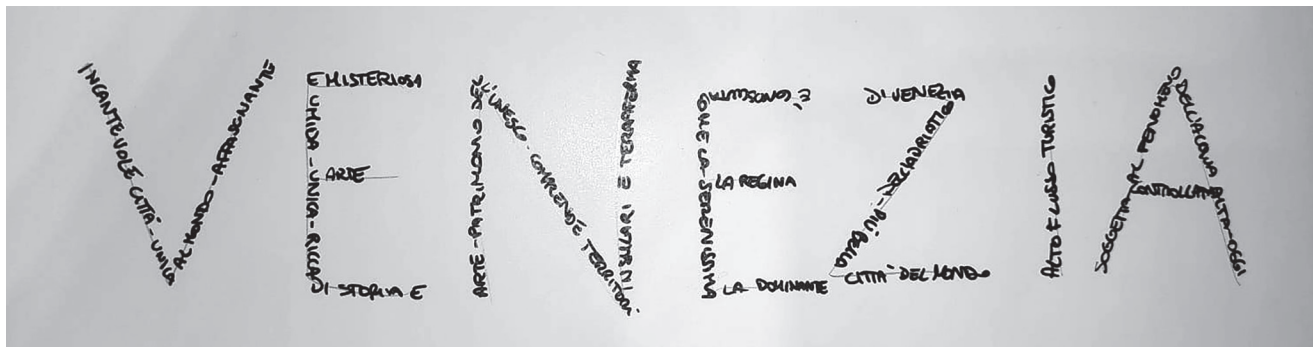 INCANTEVOLE CITTÀ-UNICA
AL MONDO-AFFASCINANTE
E MISTERIOSA
UMIDA-UMIDA-RICCA
DI STORIA E
ARTE
ARTE-PATRIMONIO DEL
L'UNESCO-COMPRENDE TERRITORI
INSULARI E TERRAFERMA
È CONOSCIUTA
COME LA-SERENISSIMA
LA DOMINANTE
LA REGINA
DELL'ADRIATICO-
CITTÀ DEL MONDO
DI VENEZIA
ALTO FLUSSO TURISTICO
SOGGETTA AL FENOMENO
DELL'ACQUA ALTA-OGGI
CONTROLLATA